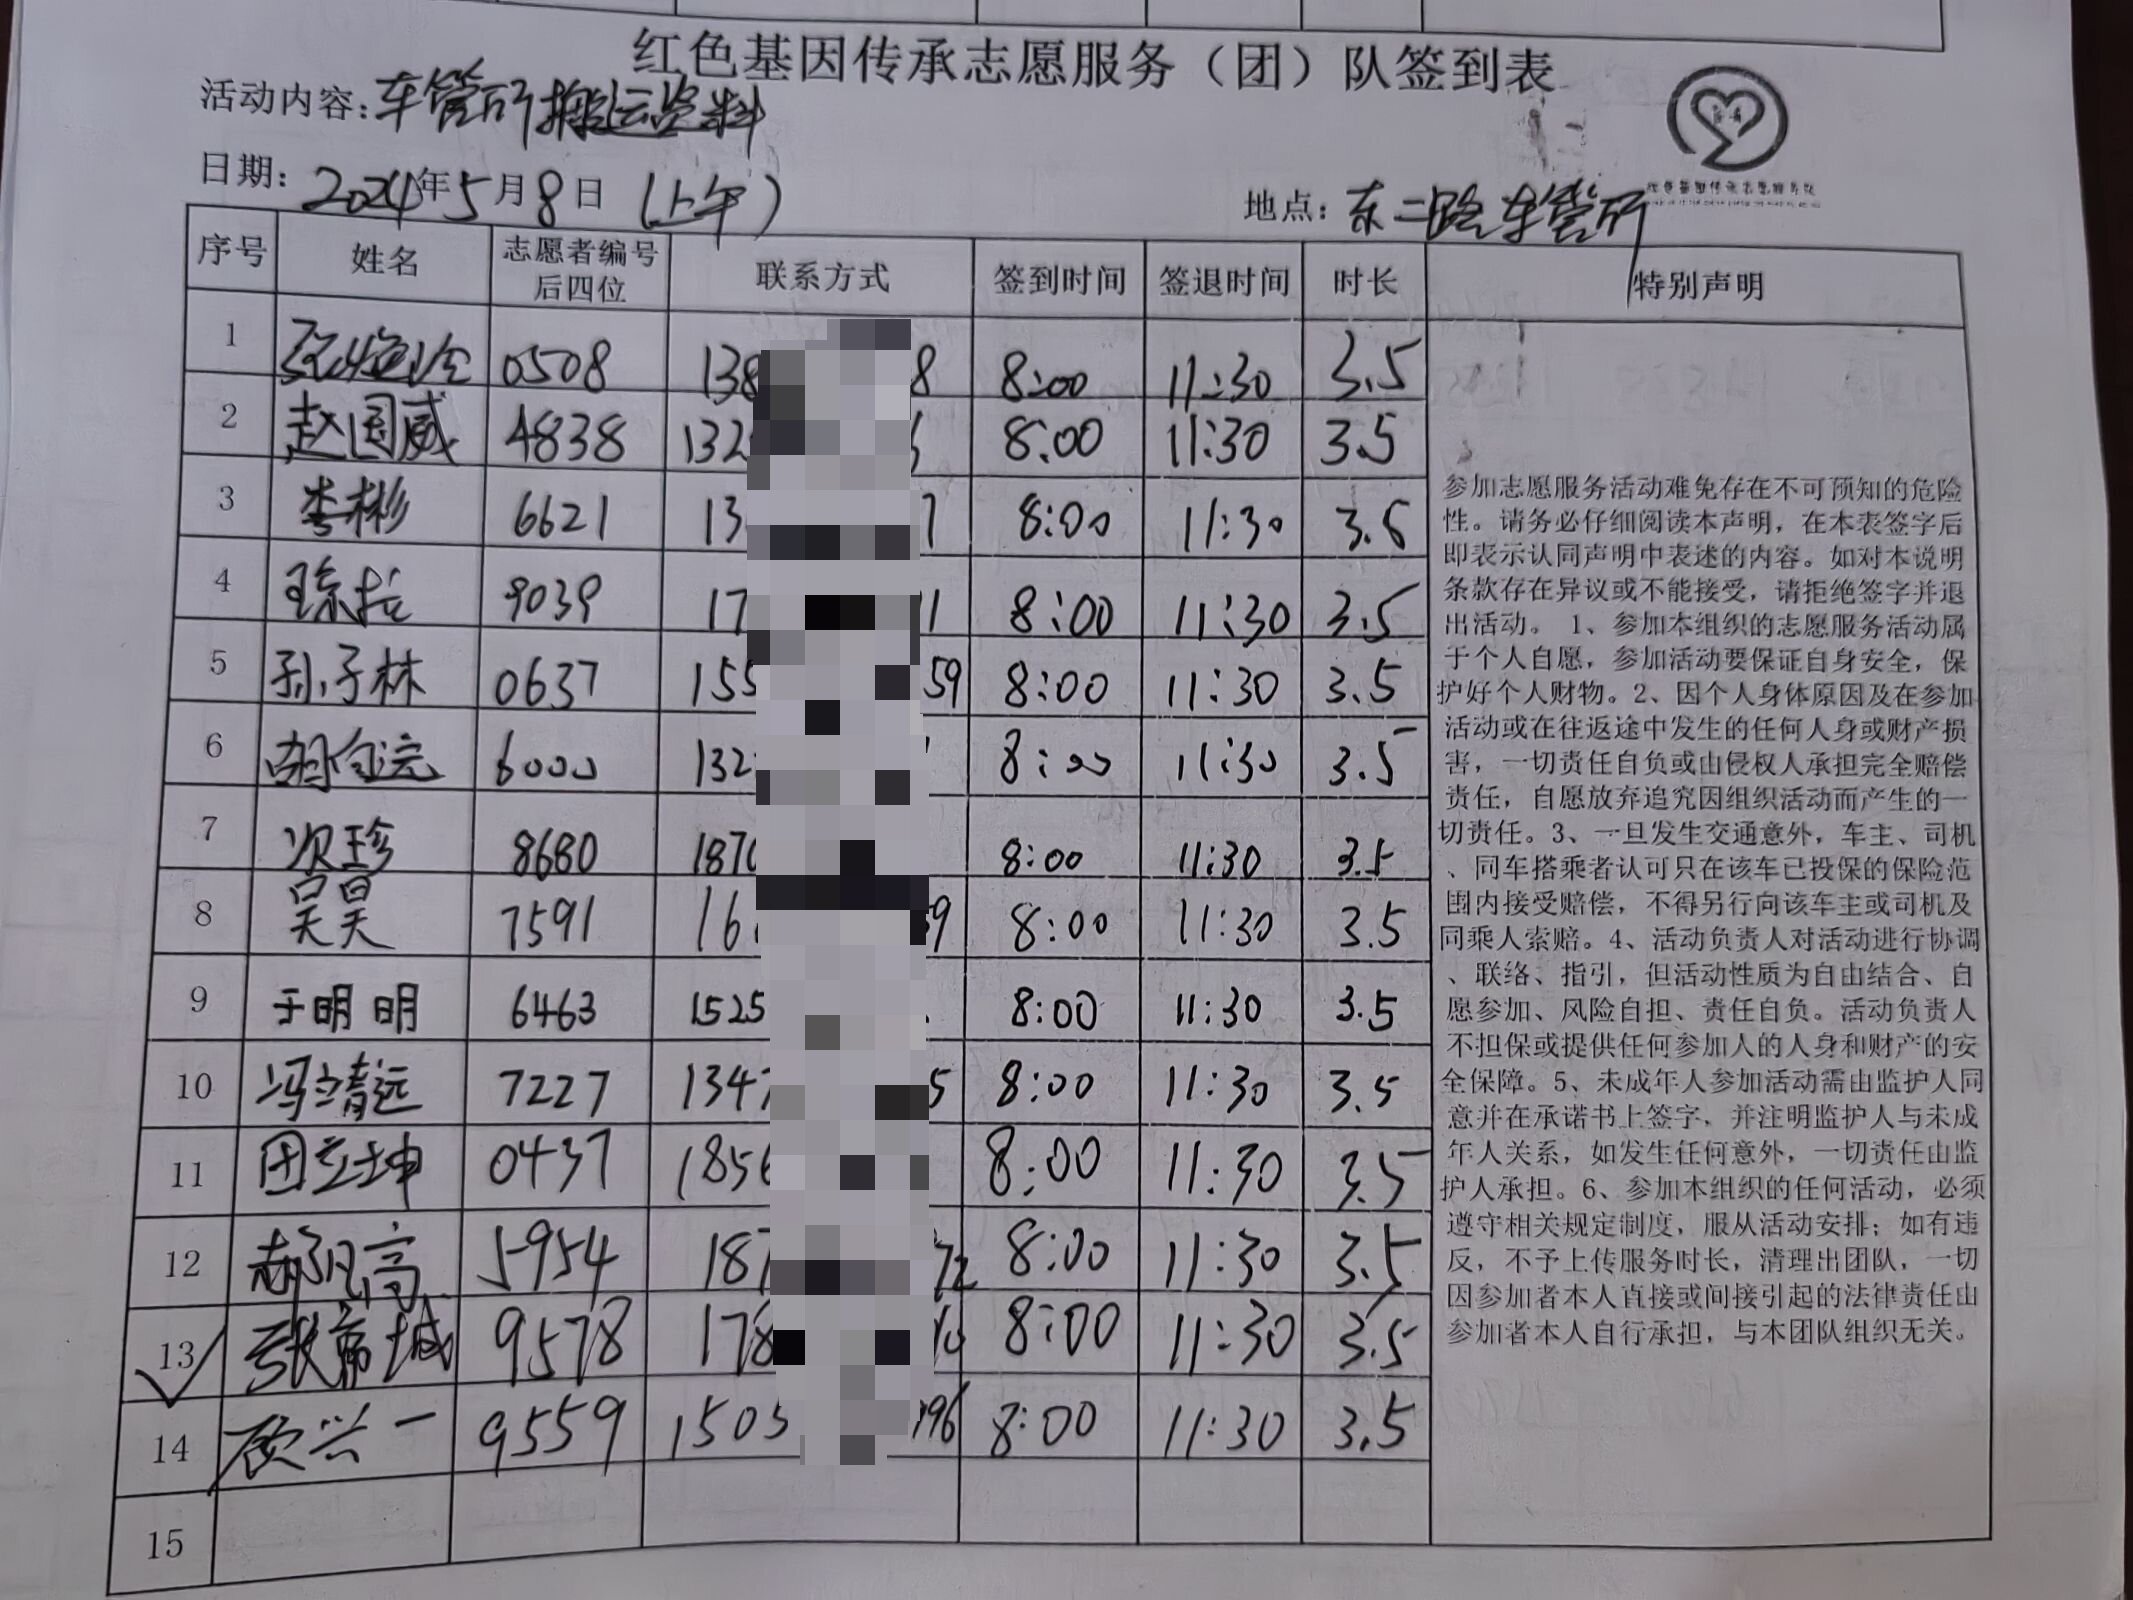 红色基因传承志愿服务（团）队签到表
活动内容：车管所搬运资料
日期：2024年5月8日（上午） 地点：东二路车管所
序号 姓名 志愿者编号后四位 联系方式 签到时间 签退时间 时长 特别声明
1 0508 138 8 8:00 11:30 3.5
2 赵国威 4838 132 8:00 11:30 3.5
3 李彬 6621 13 7 8:00 11:30 3.5
4 9039 17 1 8:00 11:30 3.5
5 孙子林 0637 155 59 8:00 11:30 3.5
6 6000 132 8:00 11:30 3.5
7 次珍 8680 187 8:00 11:30 3.5
8 吴昊 7591 16 9 8:00 11:30 3.5
9 于明明 6463 1525 8:00 11:30 3.5
10 冯靖远 7227 134 5 8:00 11:30 3.5
11 田立坤 0437 1856 8:00 11:30 3.5
12 郝凡高 5954 187 72 8:00 11:30 3.5
13 9578 178 0 8:00 11:30 3.5
14 顾兴一 9559 1505 96 8:00 11:30 3.5
15
参加志愿服务活动难免存在不可预知的危险
性。请务必仔细阅读本声明，在本表签字后
即表示认同声明中表述的内容。如对本说明
条款存在异议或不能接受，请拒绝签字并退
出活动。 1、参加本组织的志愿服务活动属
于个人自愿，参加活动要保证自身安全，保
护好个人财物。2、因个人身体原因及在参加
活动或在往返途中发生的任何人身或财产损
害，一切责任自负或由侵权人承担完全赔偿
责任，自愿放弃追究因组织活动而产生的一
切责任。3、一旦发生交通意外，车主、司机
、同车搭乘者认可只在该车已投保的保险范
围内接受赔偿，不得另行向该车主或司机及
同乘人索赔。4、活动负责人对活动进行协调
、联络、指引，但活动性质为自由结合、自
愿参加、风险自担、责任自负。活动负责人
不担保或提供任何参加人的人身和财产的安
全保障。5、未成年人参加活动需由监护人同
意并在承诺书上签字，并注明监护人与未成
年人关系，如发生任何意外，一切责任由监
护人承担。6、参加本组织的任何活动，必须
遵守相关规定制度，服从活动安排；如有违
反，不予上传服务时长，清理出团队，一切
因参加者本人直接或间接引起的法律责任由
参加者本人自行承担，与本团队组织无关。